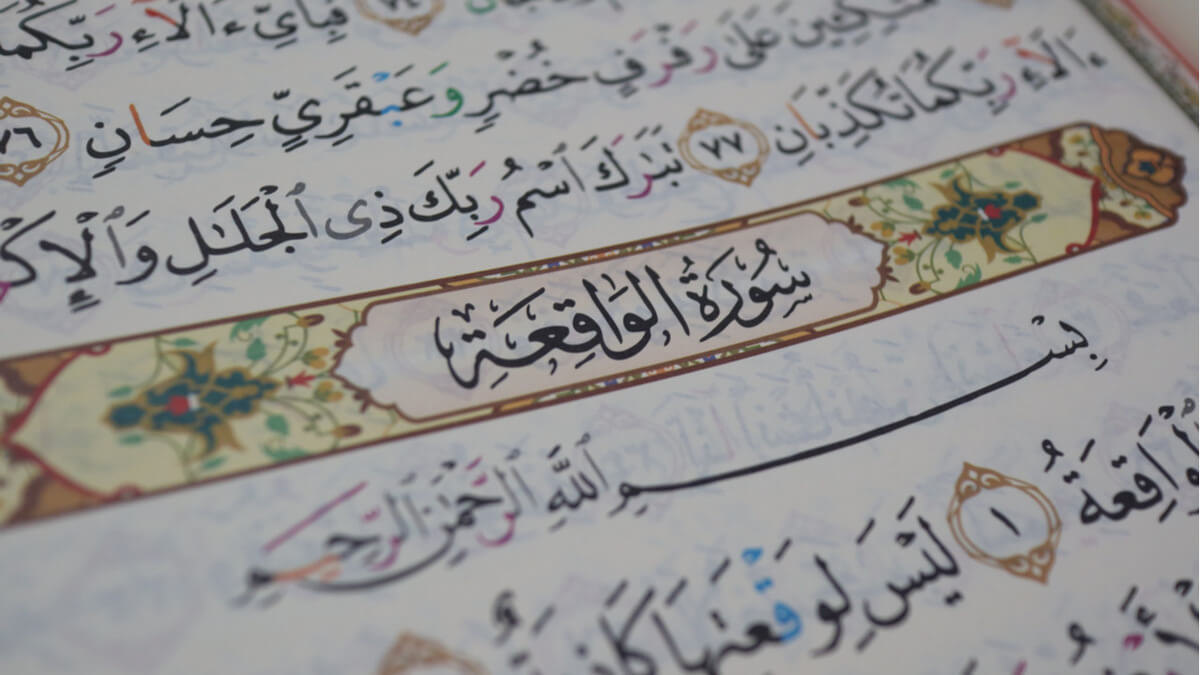 فَبِأَيِّ ءَالَآءِ رَبِّكُمَا
٧٦ مُتَّكِـِٔينَ عَلَىٰ رَفْرَفٍ خُضْرٍ وَعَبْقَرِيٍّ حِسَانٍ
ءَالَآءِ رَبِّكُمَا تُكَذِّبَانِ ٧٧ تَبَٰرَكَ ٱسْمُ رَبِّكَ ذِى ٱلْجَلَٰلِ وَٱلْإِكْ
سُورَةُ الوَاقِعَةِ
بِسْمِ ٱللَّهِ ٱلرَّحْمَٰنِ ٱلرَّحِيمِ
ٱلْوَاقِعَةُ ١ لَيْسَ لِوَقْعَتِهَا